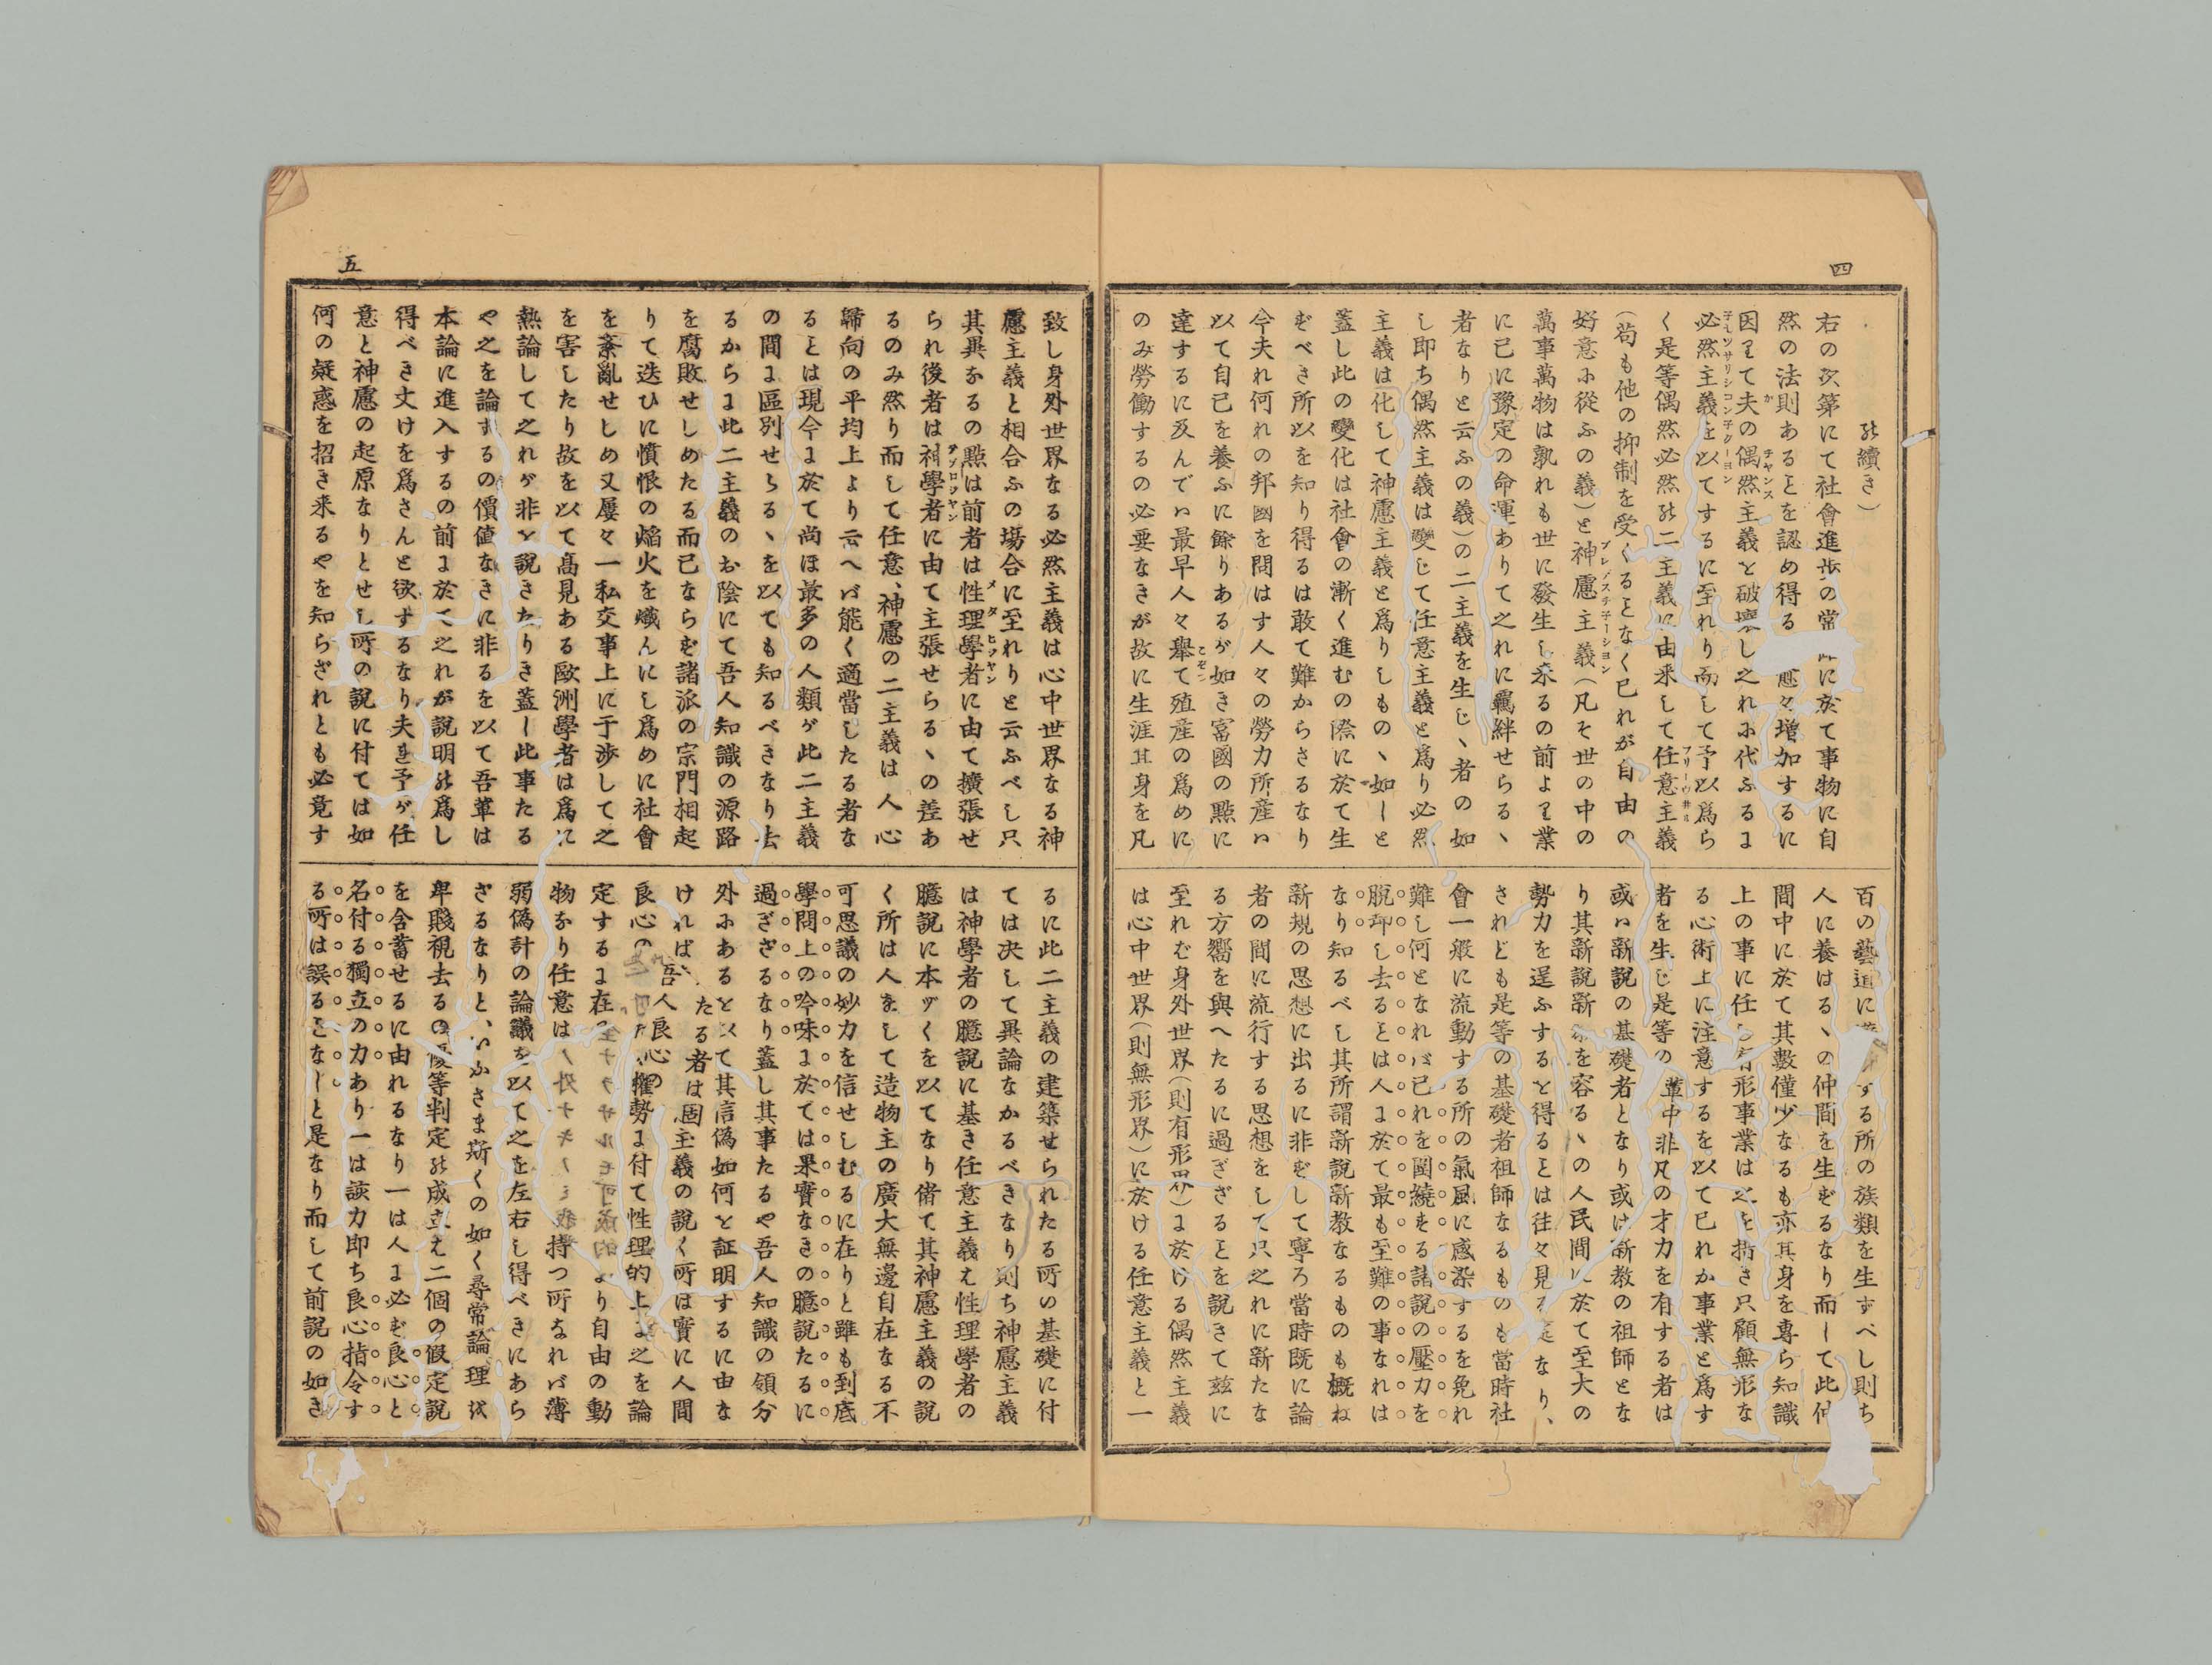 四
の續き)
右の次第にて社會進歩の常に於て事物に自
然の法則あることを認め得る 愈々増加するに
因りて夫の偶然主義を破壞し之れに代ふるに
必然主義を以てするに至れり而して予以爲ら
く是等偶然必然の二主義に由来して任意主義
(苟も他の抑制を受くることなく已れが自由の
好意に從ふの義)と神慮主義(凡そ世の中の
萬事萬物は孰れも世に發生し来るの前より業
に已に豫定の命運ありて之れに羈絆せらるヽ
者なりと云ふの義)の二主義を生じヽ者の如
し即ち偶然主義は變じて任意主義と爲り必然
主義は化して神慮主義と爲りしものヽ如しと
蓋し此の變化は社會の漸く進むの際に於て生
ずべき所以を知り得るは敢て難からさるなり
今夫れ何れの邦國を問はす人々の勞力所産ハ
以て自己を養ふに餘りあるが如き富國の點に
達するに及んでハ最早人々舉て殖産の爲めに
のみ勞働するの必要なきが故に生涯其身を凡
百の藝道に する所の族類を生ずべし則ち
人に養はるヽの仲間を生ずるなり而して此仲
間中に於て其數僅少なるも亦其身を專ら知識
上の事に任し有形事業は之を措き只顧無形な
る心術上に注意するを以て已れか事業と爲す
者を生じ是等の輩中非凡の才力を有する者は
或ハ新説の基礎者となり或は新教の祖師とな
り其新説新 を容るヽの人民間に於て至大の
勢力を逞ふすると得ることは往々見る なり、
されども是等の基礎者祖師なるものも當時社
會一般に流動する所の氣風に感染するを免れ
難し何となれバ已れを圍繞する諸説の壓力を
脱却し去ることは人に於て最も至難の事なれは
なり知るべし其所謂新説新教なるものも概ね
新規の思想に出るに非ずして寧ろ當時既に論
者の間に流行する思想をして只之れに新たな
る方嚮を與へたるに過ぎざることを説きて玆に
至れむ身外世界(則有形界)に於ける偶然主義
は心中世界(則無形界)に於ける任意主義と一
五
致し身外世界なる必然主義は心中世界なる神
慮主義と相合ふの塲合に至れりと云ふべし只
其異なるの點は前者は性理學者に由て擴張せ
られ後者は神學者に由て主張せらるヽの差あ
るのみ然り而して任意、神慮の二主義は人心
歸向の平均上より云へバ能く適當したる者な
ることは現今に於て尚ほ最多の人類が此二主義
の間に區別せらるヽを以ても知るべきなり去
るからに此二主義のお陰にて吾人知識の源路
を腐敗せしめたる而已ならず諸派の宗門相起
りて迭ひに憤恨の熖火を熾んにし爲めに社會
を紊亂せしめ又屡々一私交事上に干渉して之
を害したり故を以て高見ある歐洲學者は爲に
熱論して之れが非を説きたりき蓋し此事たる
や之を論ずるの價値なきに非るを以て吾輩は
本論に進入するの前に於て之れが説明の爲し
得べき丈けを爲さんと欲するなり夫を予が任
意と神慮の起原なりとせし所の説に付ては如
何の疑惑を招き来るやを知らざれとも必竟す
るに此二主義の建築せられたる所の基礎に付
ては決して異論なかるべきなり則ち神慮主義
は神學者の臆説に基き任意主義は性理學者の
臆説に本づくを以てなり偖て其神慮主義の説
く所は人をして造物主の廣大無邊自在なる不
可思議の妙力を信せしむるに在りと雖も到底
學問上の吟味に於ては果實なきの臆説たるに
過ぎざるなり蓋し其事たるや吾人知識の領分
外にあるを以て其信偽如何と証明するに由な
ければ たる者は固主義の説く所は實に人間
良心の 吾人良心の 權勢に付て性理的上より之を論
定するに在 より自由の動
物なり任意は 持つ所なれバ薄
弱偽計の論議を以て之を左右し得べきにあら
ざるなりと、いかさま斯くの如く尋常論理
卑賤視去るの優等判定の成立は二個の假定説
を含蓄せるに由れるなり一は人に必ず良心と
名付る獨立の力あり一は該力即ち良心指令す
る所は誤ることなしと是なり而して前説の如き